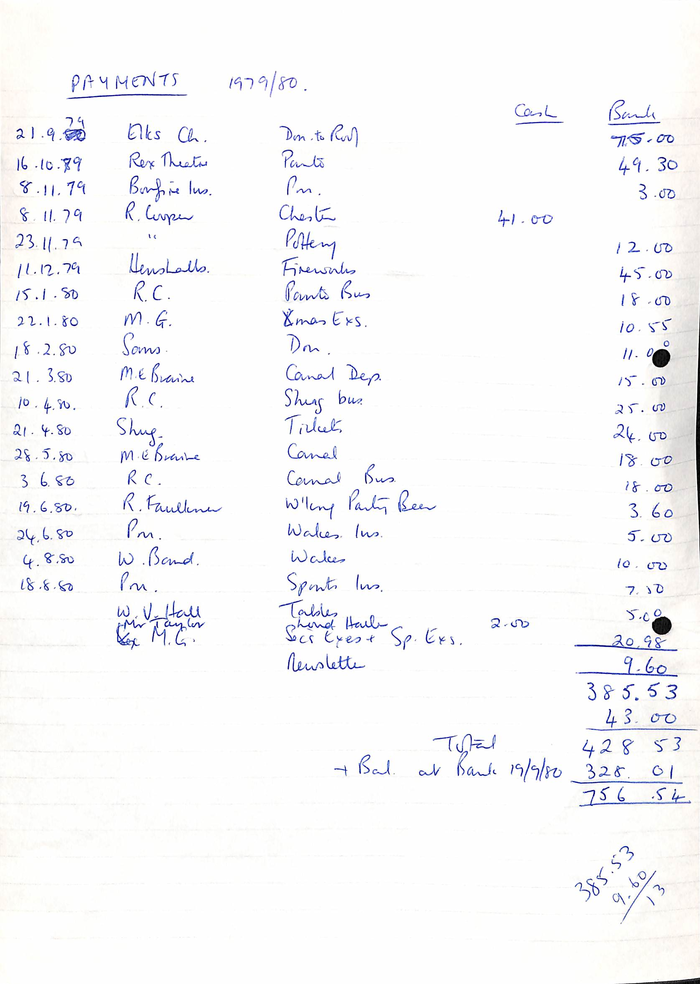 PAYMENTS 1979/80.
Cash Bank
79
21.9. Elks Ch. Don. to Roof 75.00
16.10.79 Rex Theatre Panto 49.30
8.11.79 Bonfire Ins. Pru. 3.00
8.11.79 R. Cooper Chester 41.00
23.11.79 " Pottery 12.00
11.12.79 Henshalls. Fireworks 45.00
15.1.80 R.C. Panto Bus 18.00
22.1.80 M.G. Xmas Exs. 10.55
18.2.80 Sams. Don. 11.00
21.3.80 M.E Braine Canal Dep. 15.00
10.4.80. R.C. Shug bus. 25.00
21.4.80 Shug. Tickets 24.00
28.5.80 M.E Braine Canal 18.00
3 6.80 R C. Canal Bus 18.00
19.6.80. R. Faulkner W'king Party Beer 3.60
24.6.80 Pru. Wakes Ins. 5.00
4.8.80 W. Band. Wakes 10.00
18.8.80 Pru. Sports Ins. 7.50
W.V. Hall Tables 5.00
Mr Taylor 2.00
M.G. Secs Exes + Sp. Exs. 20.98
Newsletter 9.60
385.53
43.00
Total 428 53
+ Bal. at Bank 19/9/80 328.01
756.54
385.53
9.60
13